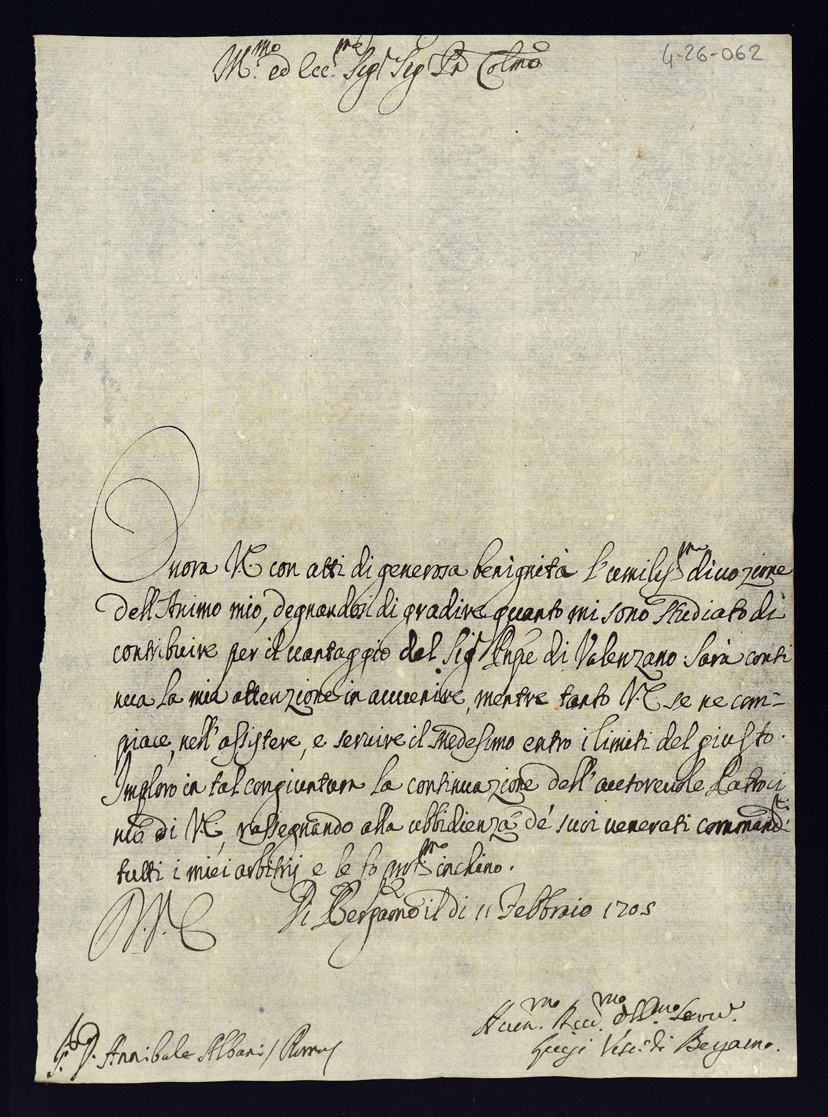 4-26-062
Ill.mo ed Ecc.mo Sig.r Sig.r Pñ Colmo
Onora V.E. con atti di generosa benignità l'umiliss.ma divozione
dell'Animo mio, degnandosi di gradire quanto mi sono studiato di
contribuire per il vantaggio del Sig.r di Valenzano Sarà conti
nua la mia attenzione in avvenire, mentre tanto V.E. se ne com=
piace, nell'assistere, e servire il Medesimo entro i limiti del giusto.
Imploro in tal congiuntura la continuazione dell'autorevole Patroci
nio di V.E., rassegnando alla ubbidienza de' suoi venerati commandi
tutti i miei arbitrij e le fo inchino.
Di Bergamo il di 11 Febbraio 1705
D. Annibale Albani / Roma
Luigi Vesc.o di Bergamo.